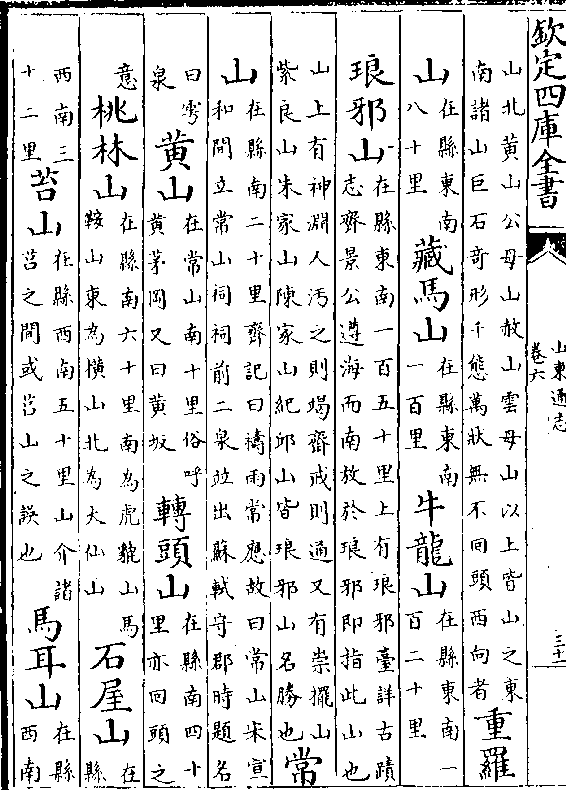 欽定四庫全書
山東通志
卷六
三十一
山北黄山公母山赦山雲母山以上皆山之東
南諸山巨石奇形千態萬狀無不回頭西向者
重羅
山
在縣東南
八十里
藏馬山
在縣東南
一百里
牛龍山
在縣東南一
百二十里
琅邪山
在縣東南一百五十里上有琅邪臺詳古蹟
志齊景公遵海而南放於琅邪即指此山也
山上有神淵人汚之則竭齊戒則通又有崇擺山
紫良山朱家山陳家山紀邱山皆琅邪山名勝也
常
山
在縣南二十里齊記曰禱雨常應故曰常山宋宣
和間立常山祠祠前二泉竝出蘇軾守郡時題名
曰雩
泉
黄山
在常山南十里俗呼
黄茅岡又曰黄坂
轉頭山
在縣南四十
里亦回頭之
意
桃林山
在縣南六十里南為虎䝞山馬
鞍山東為橫山北為大仙山
石屋山
在
縣
西南三
十二里
莒山
在縣西南五十里山介諸
莒之間或莒山之誤也
馬耳山
在縣
西南